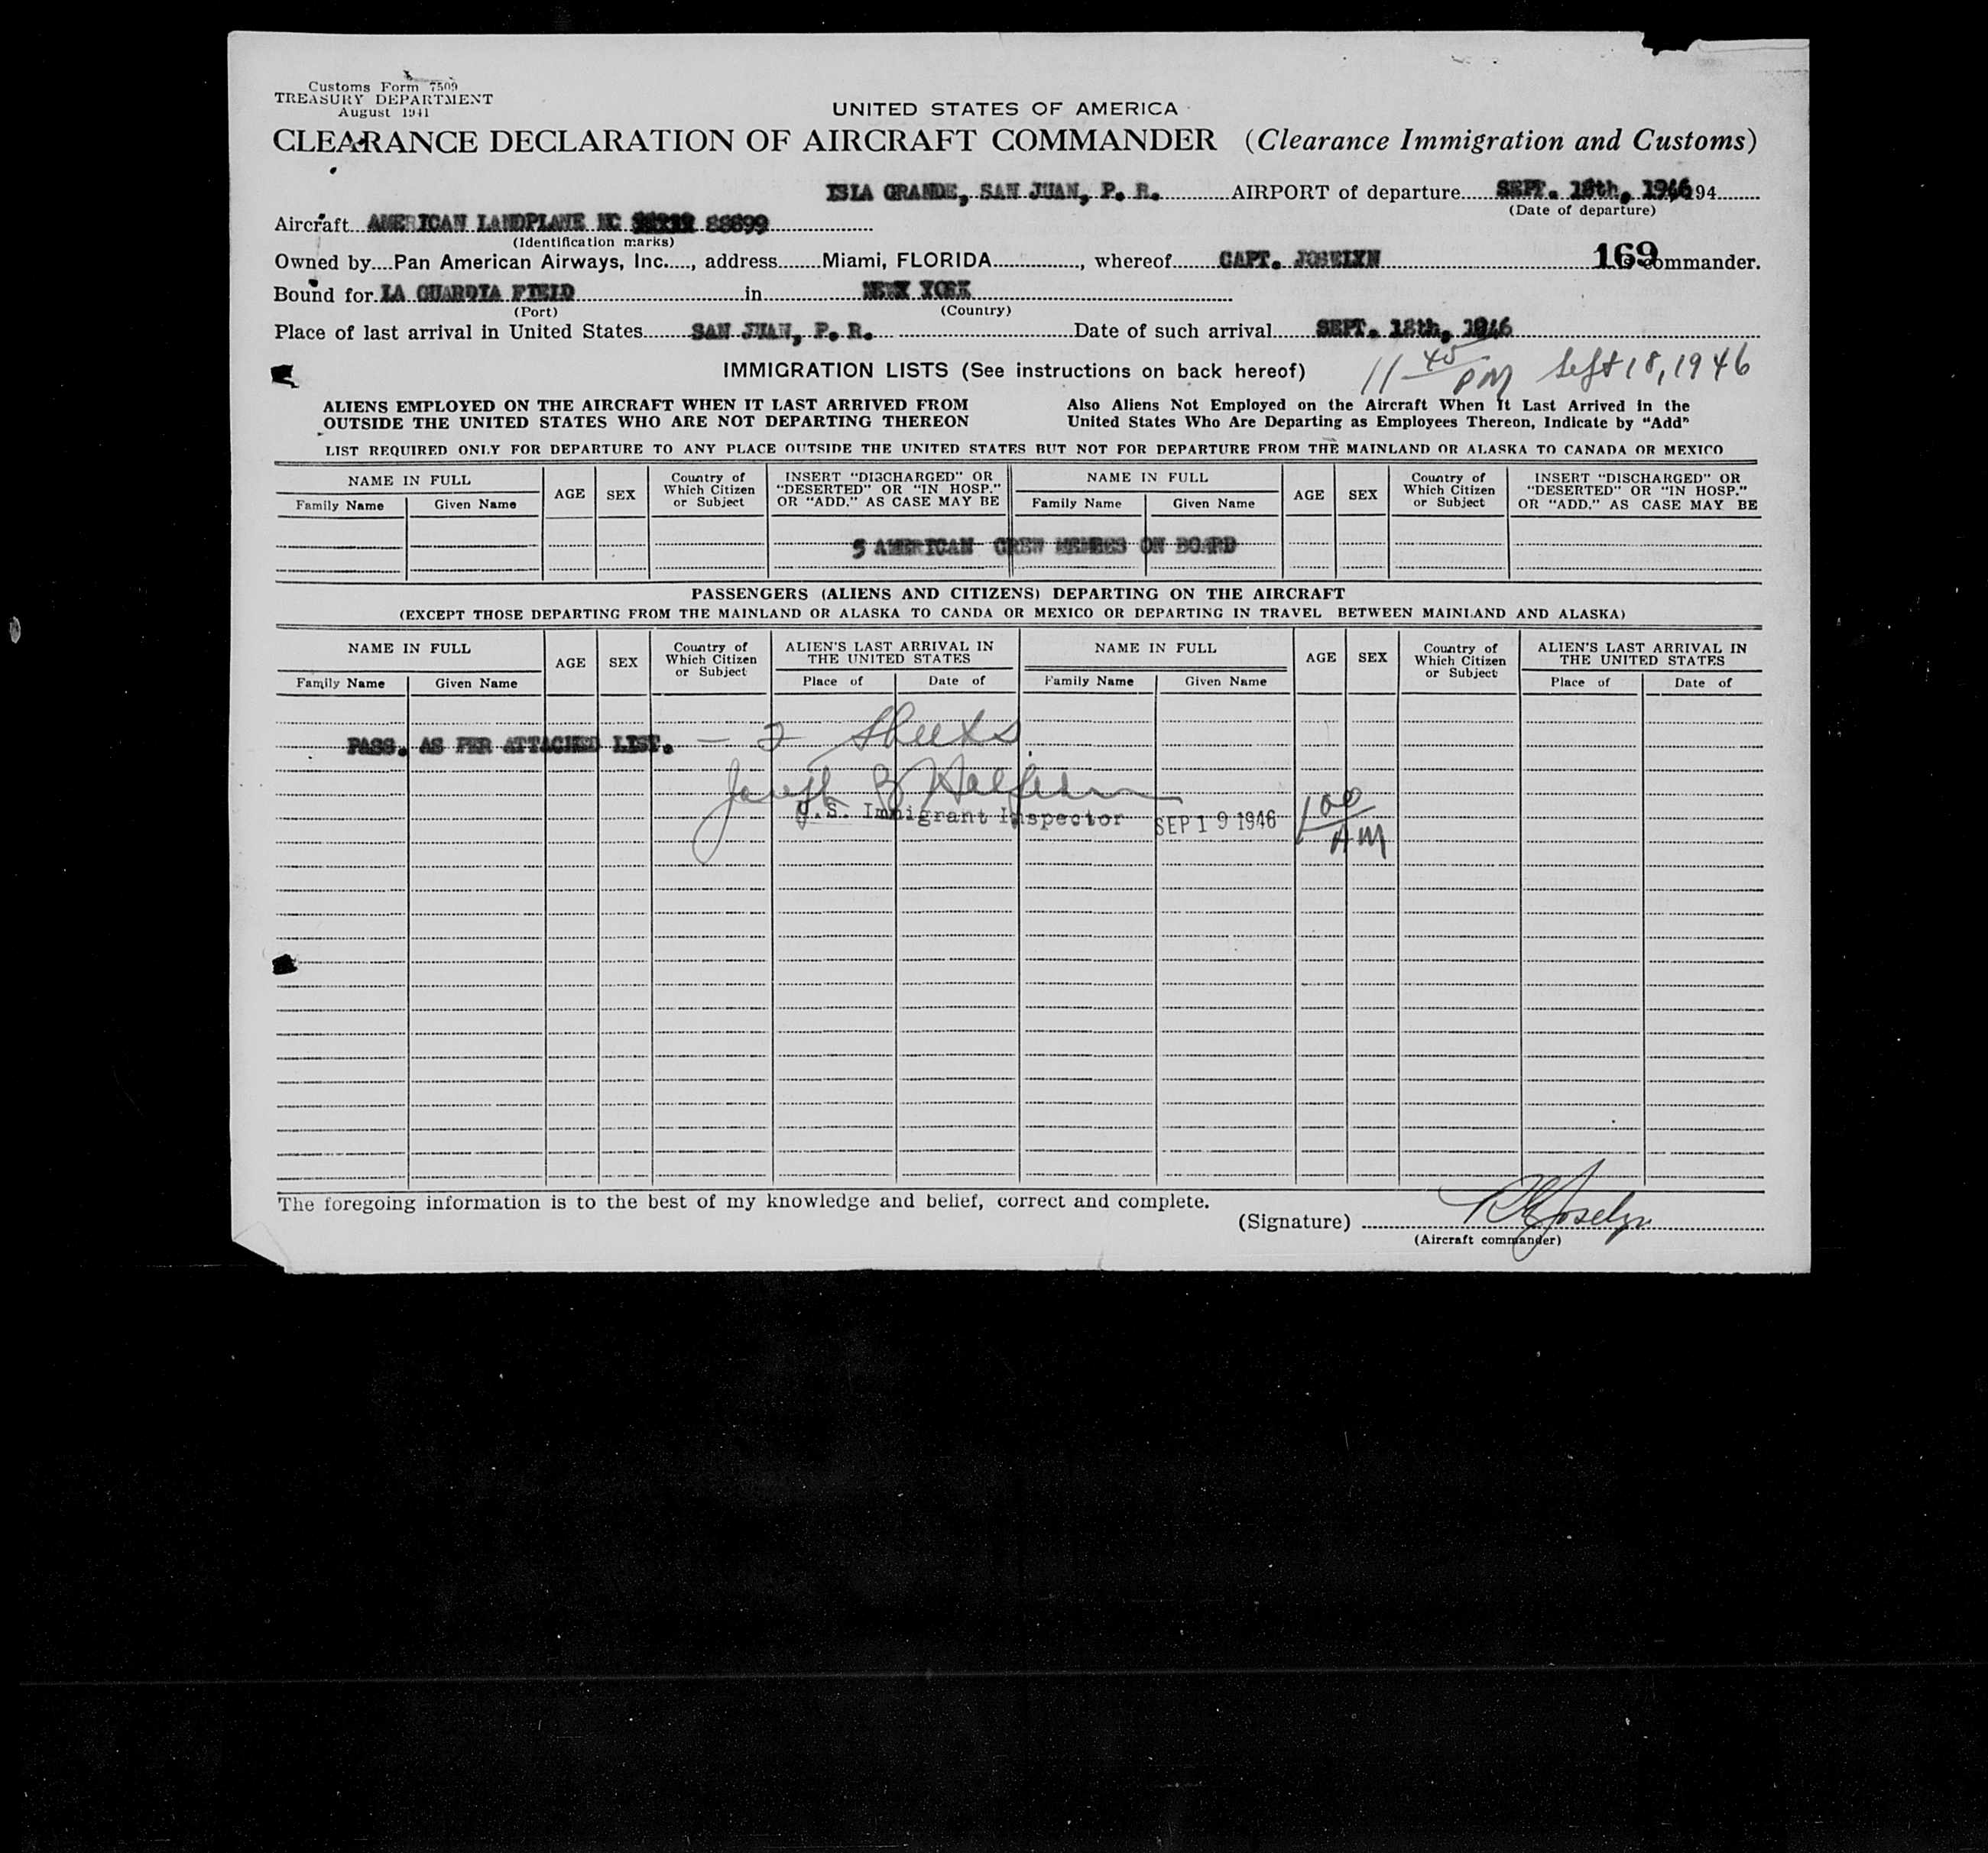 Customs Form 7509
TREASURY DEPARTMENT
August 1941
UNITED STATES OF AMERICA
CLEARANCE DECLARATION OF AIRCRAFT COMMANDER (Clearance Immigration and Customs)
ISLA GRANDE, SAN JUAN, P. R. AIRPORT of departure SEPT. 18th, 1946 194
(Date of departure)
Aircraft AMERICAN LANDPLANE NC 88899
(Identification marks)
Owned by Pan American Airways, Inc., address Miami, FLORIDA, whereof CAPT. JOSELYN 169 commander.
Bound for LA GUARDIA FIELD in NEW YORK
(Port) (Country)
Place of last arrival in United States SAN JUAN, P. R. Date of such arrival SEPT. 18th, 1946
IMMIGRATION LISTS (See instructions on back hereof) 11 45 PM Sept 18, 1946
ALIENS EMPLOYED ON THE AIRCRAFT WHEN IT LAST ARRIVED FROM
OUTSIDE THE UNITED STATES WHO ARE NOT DEPARTING THEREON
Also Aliens Not Employed on the Aircraft When It Last Arrived in the
United States Who Are Departing as Employees Thereon, Indicate by "Add"
LIST REQUIRED ONLY FOR DEPARTURE TO ANY PLACE OUTSIDE THE UNITED STATES BUT NOT FOR DEPARTURE FROM THE MAINLAND OR ALASKA TO CANADA OR MEXICO
NAME IN FULL
Family Name Given Name
AGE
SEX
Country of
Which Citizen
or Subject
INSERT "DISCHARGED" OR
"DESERTED" OR "IN HOSP."
OR "ADD," AS CASE MAY BE
NAME IN FULL
Family Name Given Name
AGE
SEX
Country of
Which Citizen
or Subject
INSERT "DISCHARGED" OR
"DESERTED" OR "IN HOSP."
OR "ADD," AS CASE MAY BE
5 AMERICAN CREW MEMBES ON BOARD
PASSENGERS (ALIENS AND CITIZENS) DEPARTING ON THE AIRCRAFT
(EXCEPT THOSE DEPARTING FROM THE MAINLAND OR ALASKA TO CANDA OR MEXICO OR DEPARTING IN TRAVEL BETWEEN MAINLAND AND ALASKA)
NAME IN FULL
Family Name Given Name
AGE
SEX
Country of
Which Citizen
or Subject
ALIEN'S LAST ARRIVAL IN
THE UNITED STATES
Place of Date of
NAME IN FULL
Family Name Given Name
AGE
SEX
Country of
Which Citizen
or Subject
ALIEN'S LAST ARRIVAL IN
THE UNITED STATES
Place of Date of
PASS. AS PER ATTACHED LIST. — 2 Sheets
Joseph
U.S. Immigrant Inspector SEP 19 1946 1 00 AM
The foregoing information is to the best of my knowledge and belief, correct and complete.
(Signature) Joselyn
(Aircraft commander)